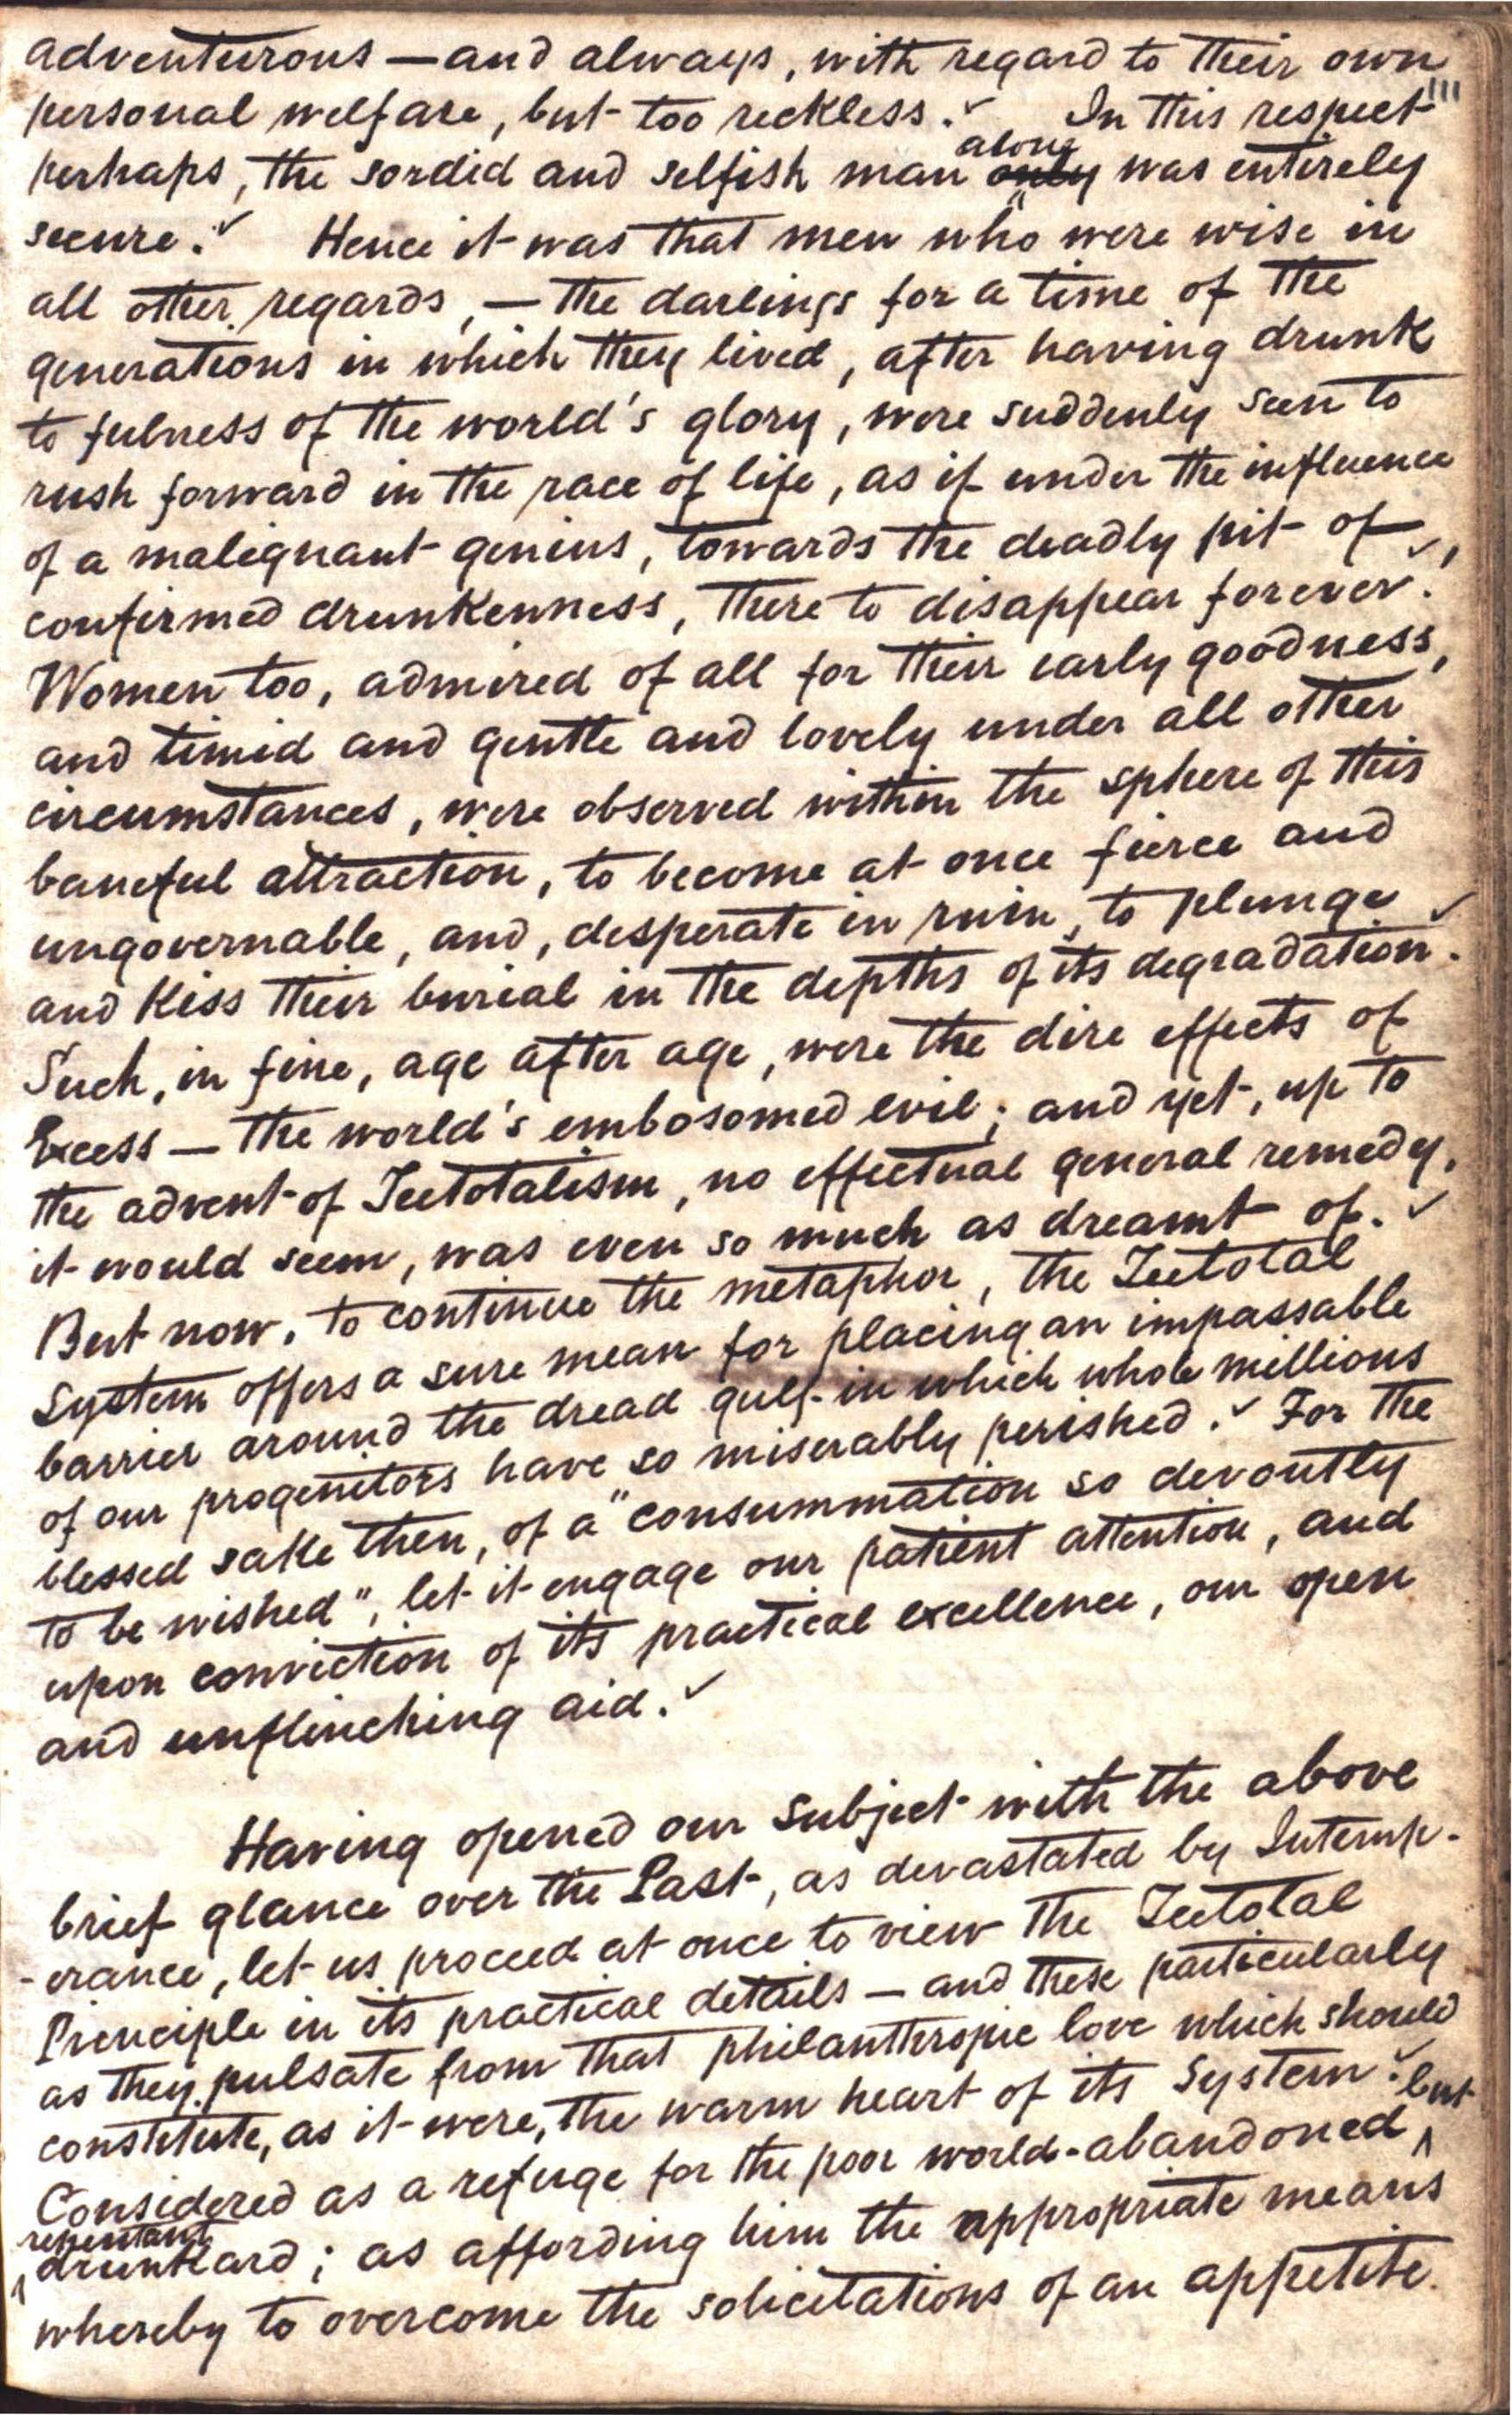 adventurous — and always, with regard to their own
111
personal welfare, but too reckless. ✓ In this respect
perhaps, the sordid and selfish man ~~only~~ alone was entirely
secure. ✓ Hence it was that men who were wise in
all other regards, — the darlings for a time of the
generations in which they lived, after having drunk
to fulness of the world's glory, were suddenly seen to
rush forward in the race of life, as if under the influence
of a malignant genius, towards the deadly pit of
confirmed drunkenness, there to disappear forever. ✓
Women too, admired of all for their early goodness,
and timid and gentle and lovely under all other
circumstances, were observed within the sphere of this
baneful attraction, to become at once fierce and
ungovernable, and, desperate in ruin, to plunge
and kiss their burial in the depths of its degradation. ✓
Such, in fine, age after age, were the dire effects of
Excess — the world's embosomed evil; and yet, up to
the advent of Teetotalism, no effectual general remedy,
it would seem, was even so much as dreamt of. ✓
But now, to continue the metaphor, the Teetotal
System offers a sure mean for placing an impassable
barrier around the dread gulf in which whole millions
of our progenitors have so miserably perished. ✓ For the
blessed sake then, of a "consummation so devoutly
to be wished", let it engage our patient attention, and
upon conviction of its practical excellence, our open
and unflinching aid. ✓
Having opened our subject with the above
brief glance over the Past, as devastated by Intemp-
-erance, let us proceed at once to view the Teetotal
Principle in its practical details — and these particularly
as they pulsate from that philanthropic love which should
constitute, as it were, the warm heart of its System. ✓
Considered as a refuge for the poor world-abandoned ^ but
^ repentant drunkard; as affording him the appropriate means
whereby to overcome the solicitations of an appetite